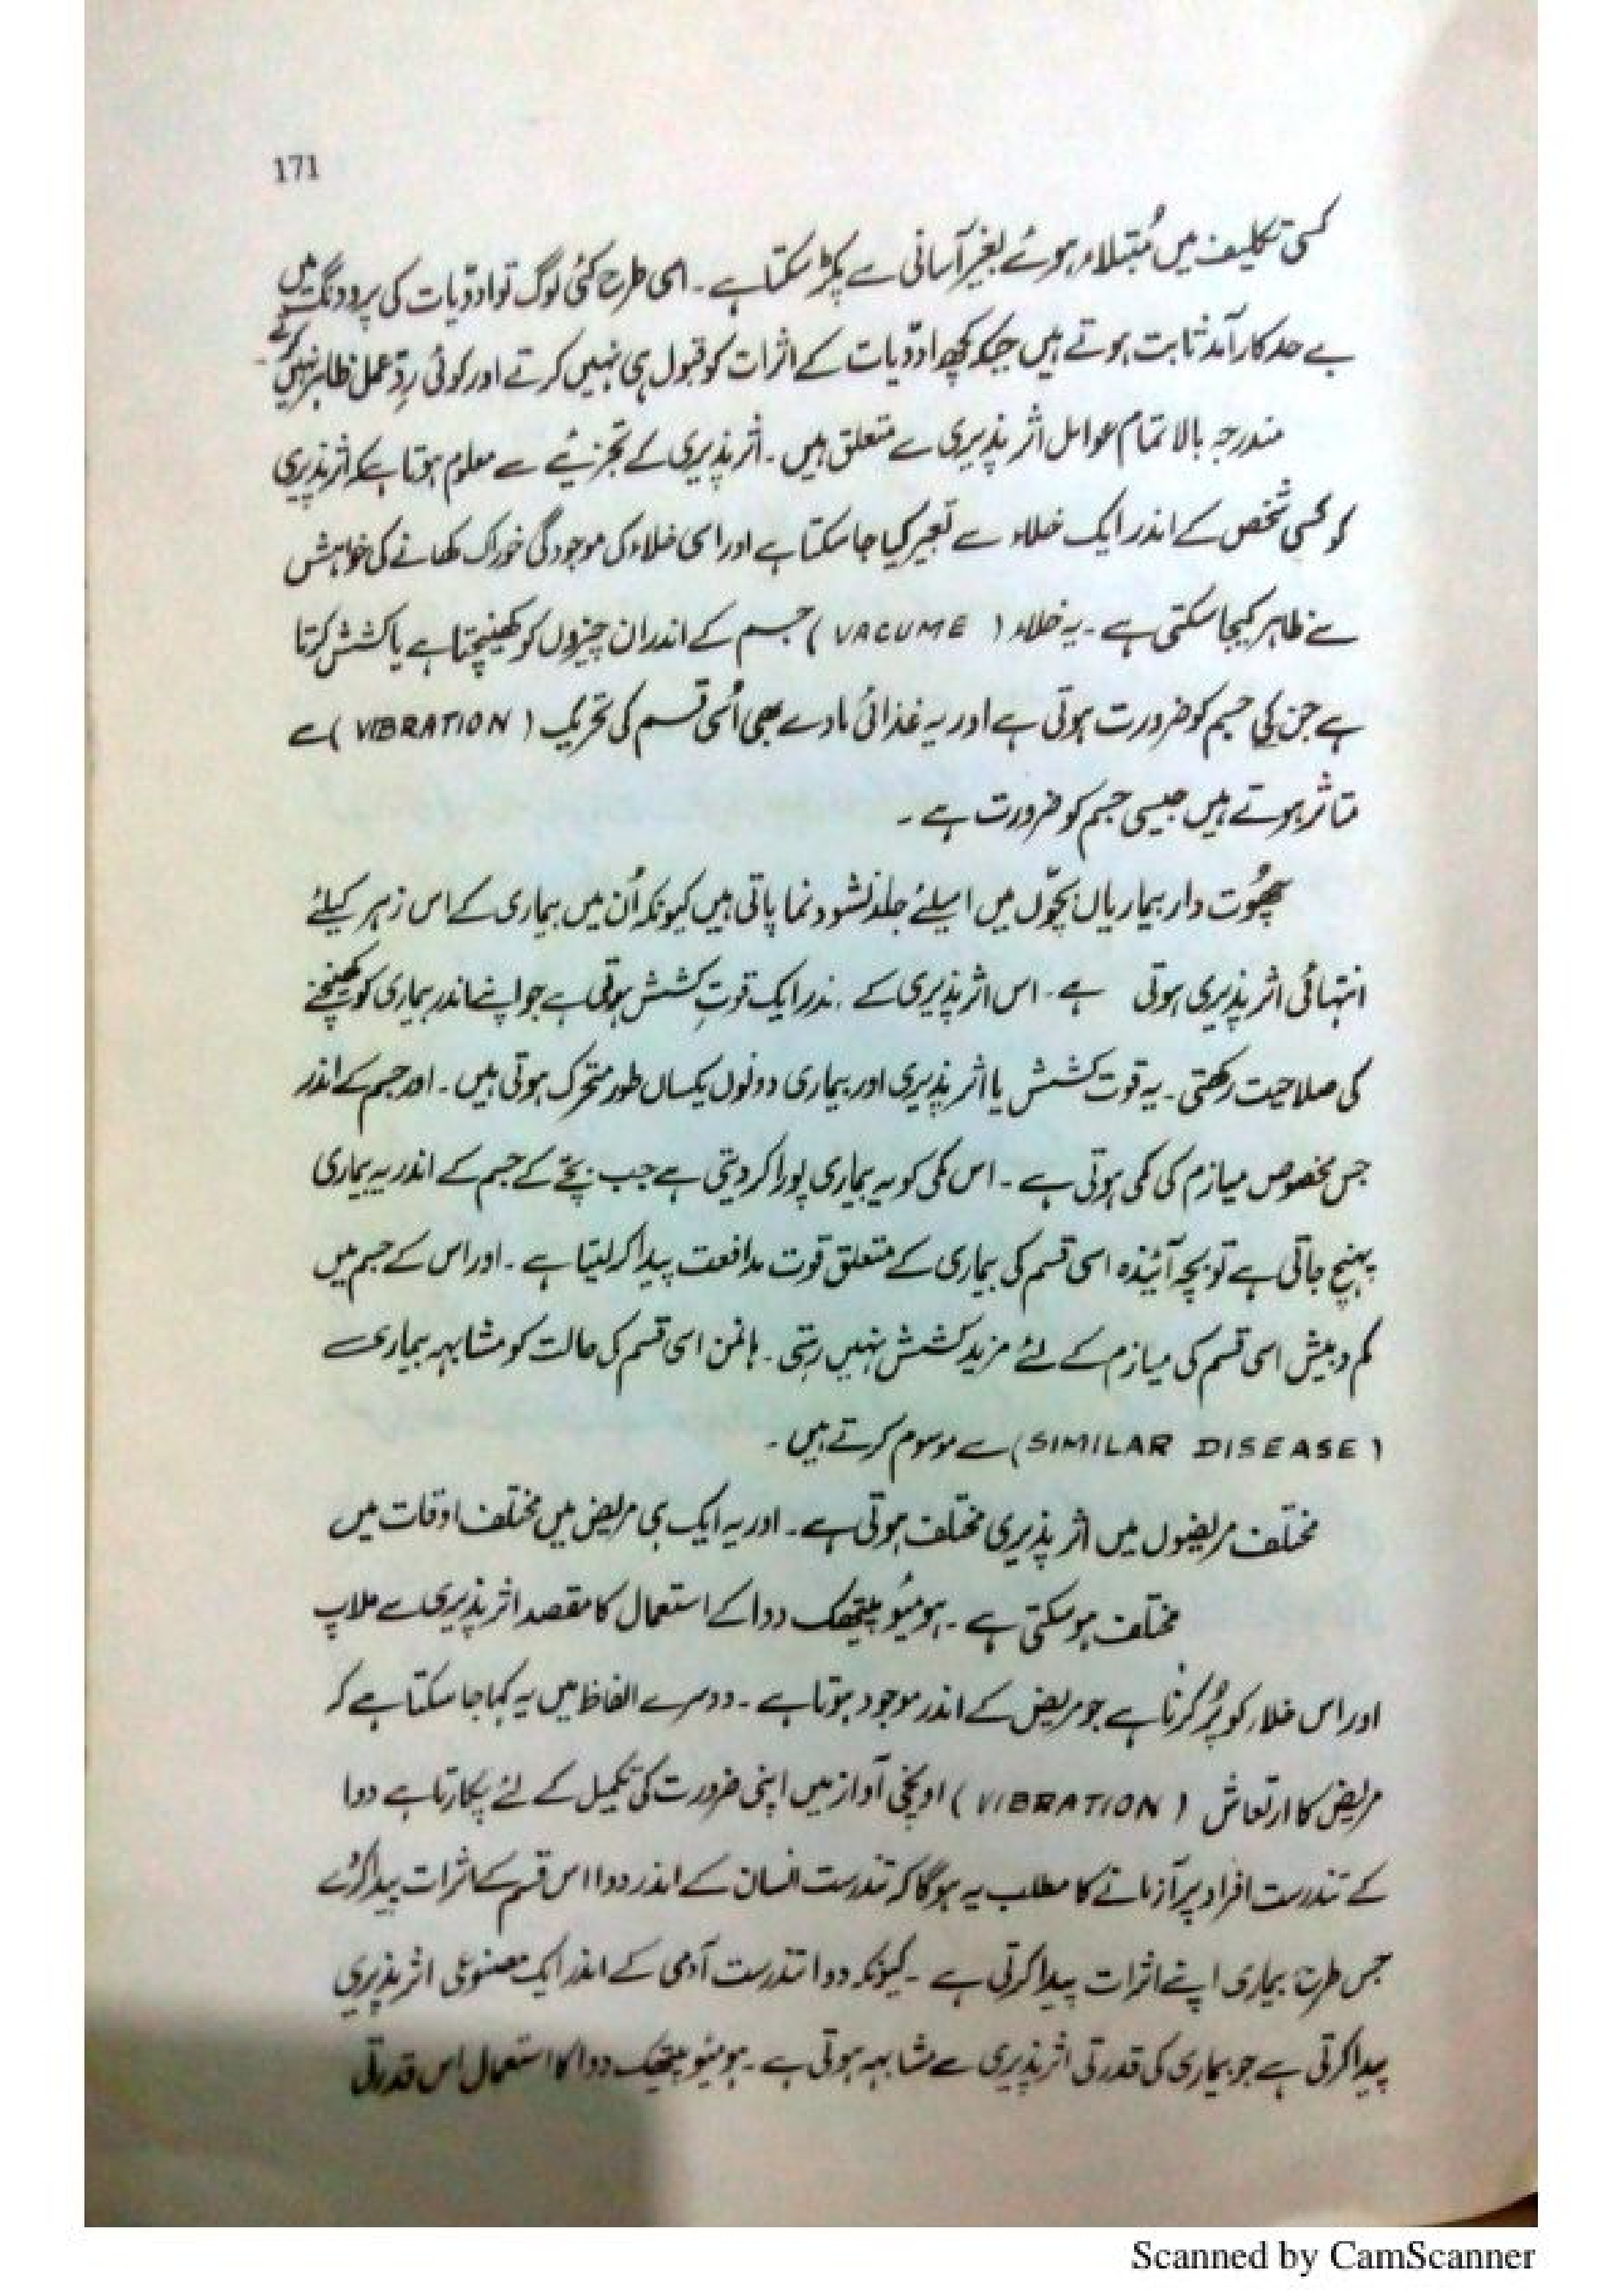 171
کسی تکلیف میں مُبتلاء ہوئے بغیر آسانی سے پکڑ سکتا ہے ۔ اسی طرح کئی لوگ تو ادوّیات کی پروونگ میں
بے حد کارآمد ثابت ہوتے ہیں جبکہ کچھ ادوّیات کے اثرات کو قبول ہی نہیں کرتے اور کوئی ردِّ عمل ظاہر نہیں کرتے ۔
مندرجہ بالا تمام عوامل اثر پذیری سے متعلق ہیں ۔ اثر پذیری کے تجزیئے سے معلوم ہوتا ہے کہ اثر پذیری
کو کسی شخص کے اندر ایک خلاء سے تعبیر کیا جا سکتا ہے اور اسی خلاء کی موجودگی خوراک کھانے کی خواہش
سے ظاہر کیجا سکتی ہے ۔ یہ خلاء ( VACUME ) جسم کے اندر ان چیزوں کو کھینچتا ہے یا کشش کرتا
ہے جن کی جسم کو ضرورت ہوتی ہے اور یہ غذائی مادے بھی اُسی قسم کی تحریک ( VIBRATION ) سے
متاثر ہوتے ہیں جیسی جسم کو ضرورت ہے ۔
چھُوت دار بیماریاں بچّوں میں اسلئے جلد نشوونما پاتی ہیں کیونکہ اُن میں بیماری کے اس زہر کیلئے
انتہائی اثر پذیری ہوتی ہے ۔ اس اثر پذیری کے ندر ایک قوتِ کشش ہوتی ہے جو اپنے اندر بیماری کو کھینچنے
کی صلاحیت رکھتی ۔ یہ قوت کشش یا اثر پذیری اور بیماری دونوں یکساں طور متحرک ہوتی ہیں ۔ اور جسم کے اندر
جس مخصوص میازم کی کمی ہوتی ہے ۔ اس کمی کو یہ بیماری پورا کر دیتی ہے جب بچّے کے جسم کے اندر یہ بیماری
پہنچ جاتی ہے تو بچہ آئندہ اسی قسم کی بیماری کے متعلق قوت مدافعت پیدا کر لیتا ہے ۔ اور اس کے جسم میں
کم و بیش اسی قسم کی میازم کے لئے مزید کشش نہیں رہتی ۔ ہانمن اسی قسم کی حالت کو مشابہہ بیماری
( SIMILAR DISEASE ) سے موسوم کرتے ہیں ۔
مختلف مریضوں میں اثر پذیری مختلف ہوتی ہے ۔ اور یہ ایک ہی مریض میں مختلف اوقات میں
مختلف ہو سکتی ہے ۔ ہومیُوپیتھک دوا کے استعمال کا مقصد اثر پذیری سے ملاپ
اور اس خلاء کو پُر کرنا ہے جو مریض کے اندر موجود ہوتا ہے ۔ دوسرے الفاظ میں یہ کہا جا سکتا ہے کہ
مریض کا ارتعاش ( VIBRATION ) اونچی آواز میں اپنی ضرورت کی تکمیل کے لئے پکارتا ہے دوا
کے تندرست افراد پر آزمانے کا مطلب یہ ہوگا کہ تندرست انسان کے اندر دوا اس قسم کے اثرات پیدا کرے
جس طرح بیماری اپنے اثرات پیدا کرتی ہے ۔ کیونکہ دوا تندرست آدمی کے اندر ایک مصنوعی اثر پذیری
پیدا کرتی ہے جو بیماری کی قدرتی اثر پذیری سے مشابہہ ہوتی ہے ۔ ہومیوپیتھک دوا کا استعمال اس قدرتی
Scanned by CamScanner